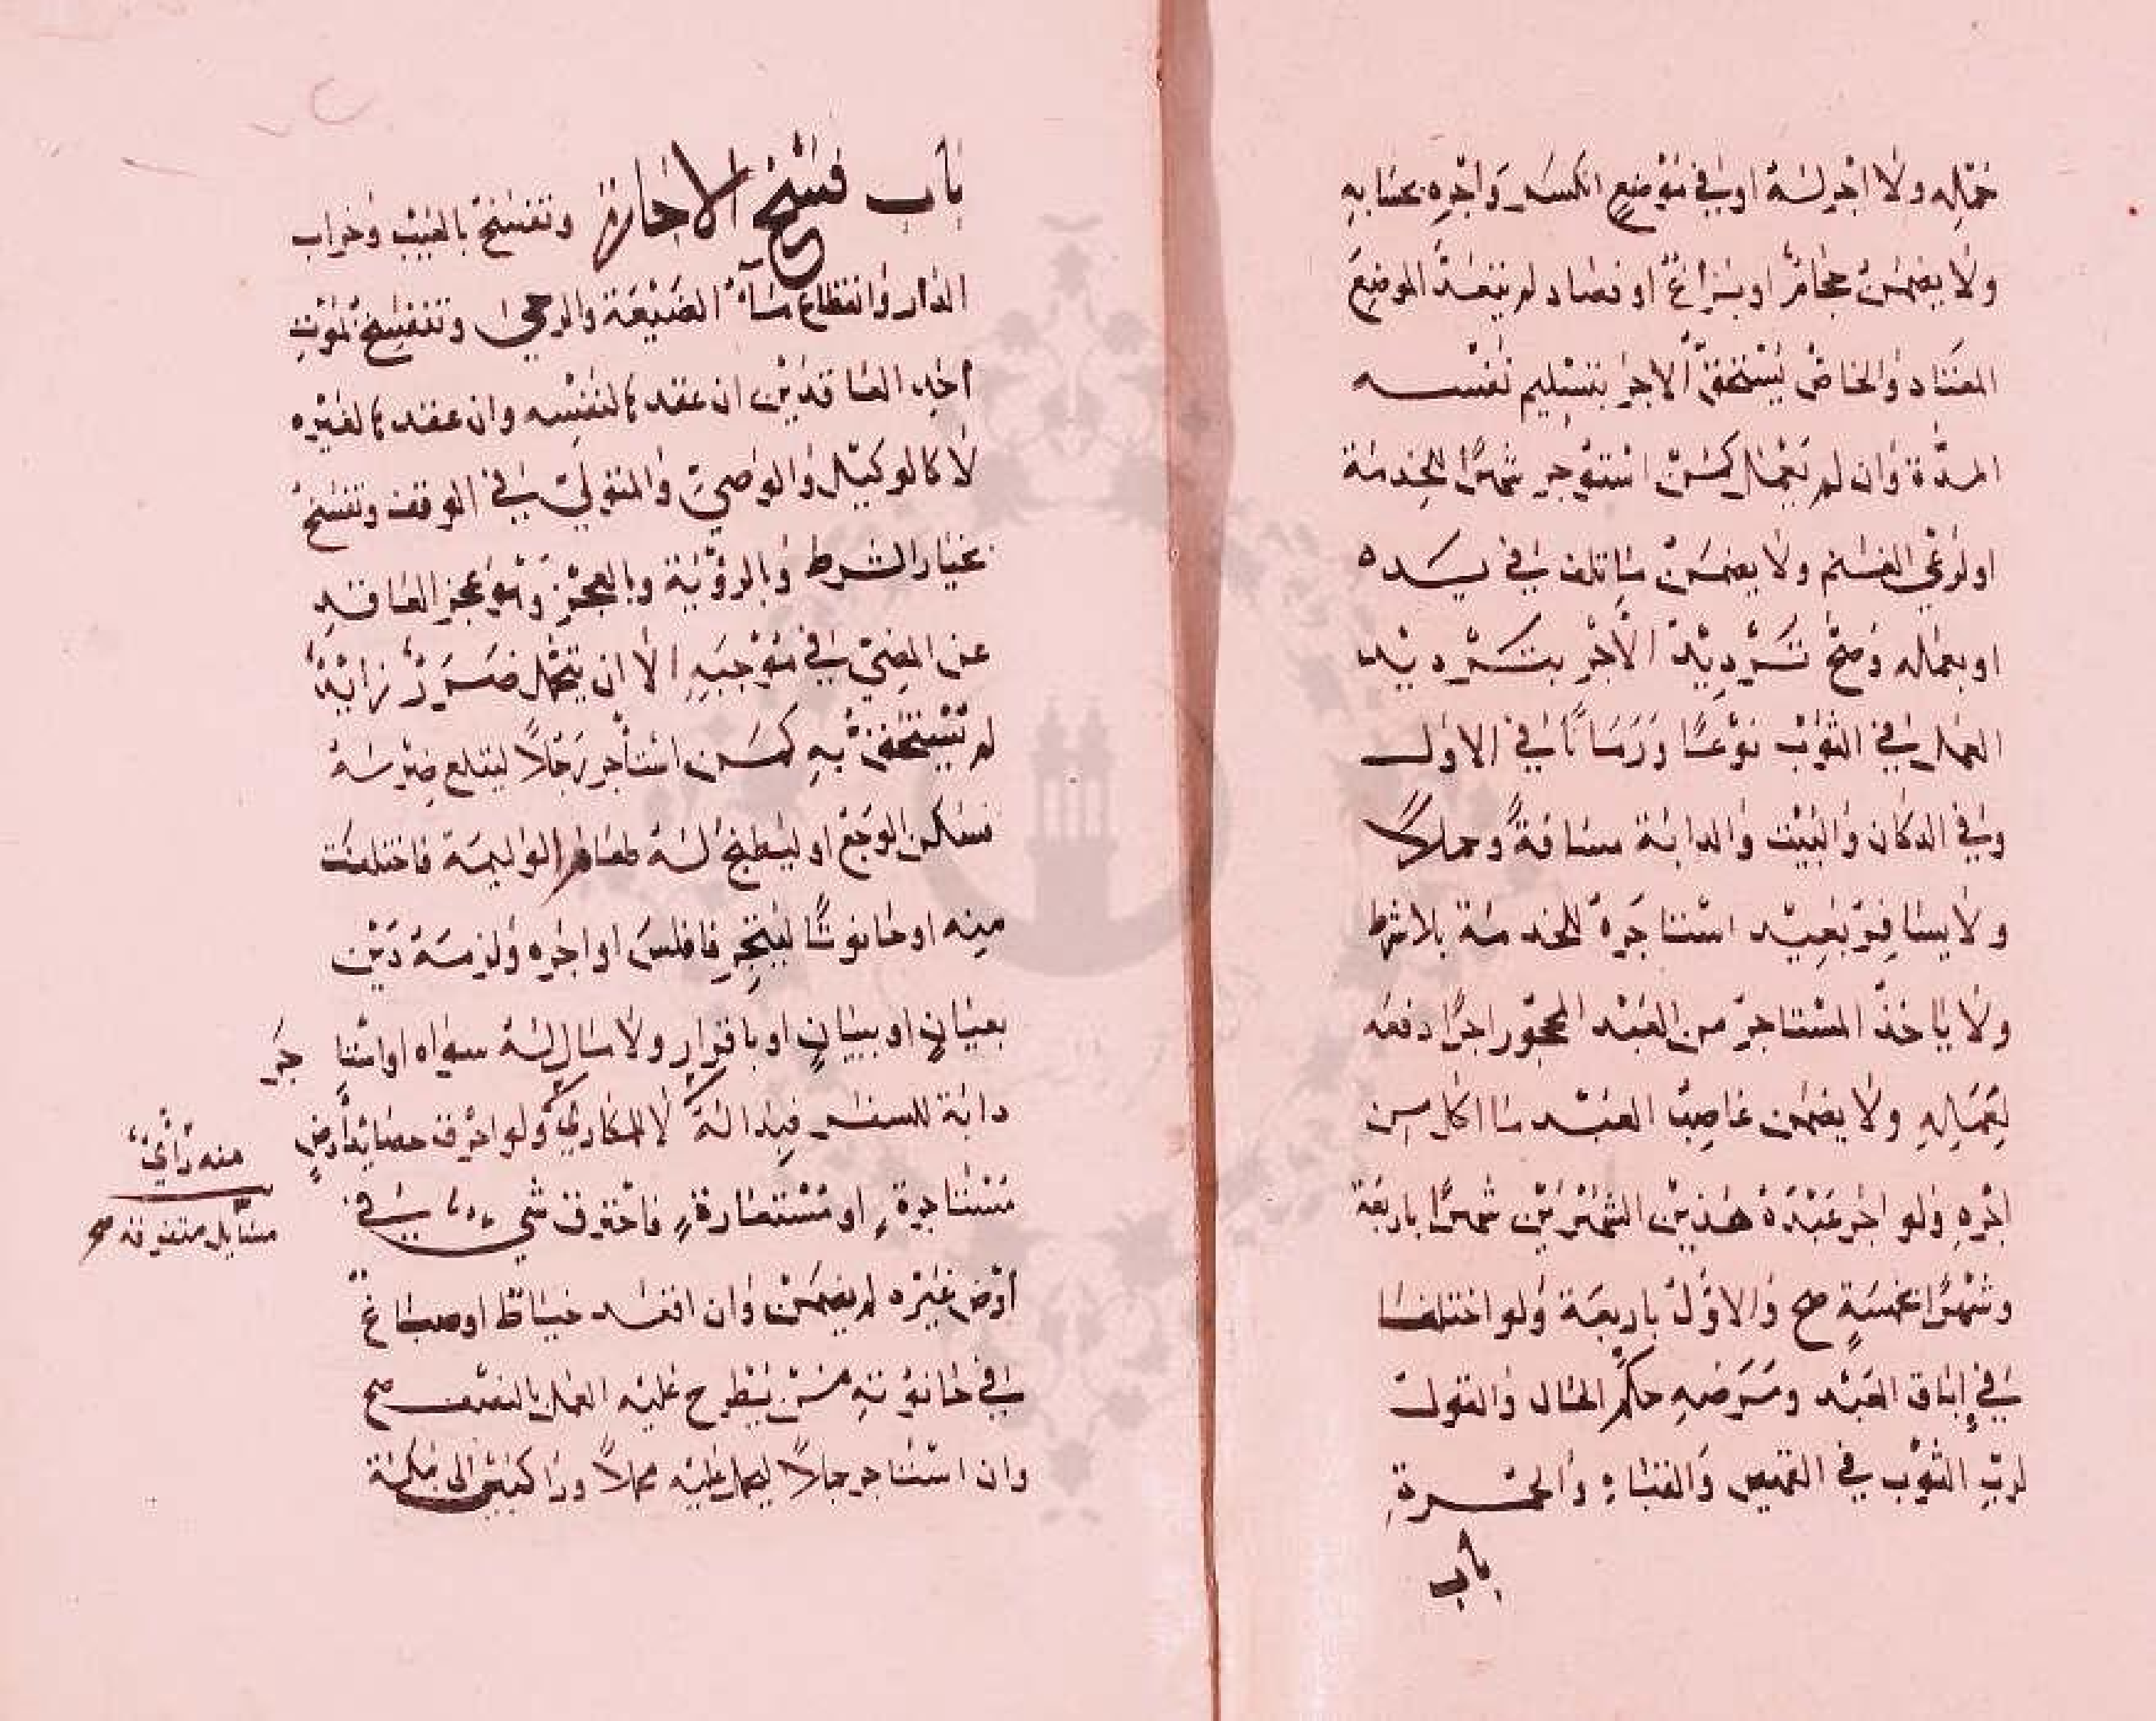 حمله ولا اجر له او في موضع انكسر واجره بحسابه
ولا يضمن حجام او بزاغ او فصاد لم يتعد الموضع
المعتاد والخاص يستحق الاجر بتسليم نفسه
المدة وان لم يعمل كمن استؤجر شهرا للخدمة
او لرعي الغنم ولا يضمن ما تلف في يده
او بعمله وصح ترديد الاجر بترديد
العمل في الثوب نوعا وزمانا في الاول
وفي الدكان والبيت والدابة مسافة وحملا
ولا يسافر بعبد استاجره للخدمة بلا شرط
ولا ياخذ المستاجر من العبد المحجور اجرا دفعه
لعمله ولا يضمن غاصب العبد ما اكل من
اجره ولو اجر عبده هذين الشهرين شهرا باربعة
وشهرا بخمسة صح والاول باربعة ولو اختلفا
في إباق العبد ومرضه حكم الحال والقول
لرب الثوب في القميص والقباء والحمرة
باب
باب فسخ الاجارة وتفسخ بالعيب وخراب
الدار وانقطاع ماء الضيعة والرحى وتنفسخ بموت
احد العاقدين ان عقدها لنفسه وان عقدها لغيره
لا كالوكيل والوصي والمتولي في الوقف وتفسخ
بخيار الشرط وبالرؤية وبالعجز وهو عجز العاقد
عن المضي في موجبه الا ان يتحمل ضرر زايد
لم يستحق به كمن استأجر رجلا ليقلع ضرسه
فسكن الوجع او ليطبخ له طعام الوليمة فاختلعت
منه او حانوتا ليتجر فافلس او اجره ولزمه دين
بعيان او ببيان او باقرار ولا مال له سواه او استا جر
دابة للسفر فبدا له لا للمكاري ولو احرق حصايد ارض
مستاجرة او مستعارة فاحترق شيء في
ارض غيره لم يضمن وان اقعد خياط او صباغ
في حانوته من يطرح عليه العمل بالنصف صح
وان استاجر جملا ليحمل عليه محملا وراكبين الى مكة
منه رأي
مسايل متفرقة صح